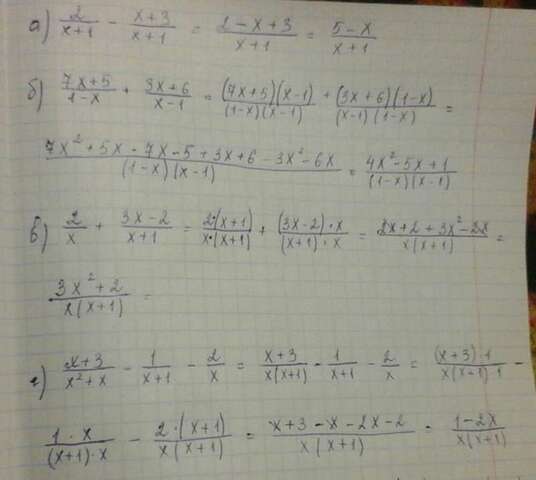 а) 2/(x+1) - (x+3)/(x+1) = (2-x+3)/(x+1) = (5-x)/(x+1)
б) (7x+5)/(1-x) + (3x+6)/(x-1) = ((7x+5)(x-1))/((1-x)(x-1)) + ((3x+6)(1-x))/((x-1)(1-x)) =
(7x²+5x-7x-5+3x+6-3x²-6x)/((1-x)(x-1)) = (4x²-5x+1)/((1-x)(x-1))
в) 2/x + (3x-2)/(x+1) = (2·(x+1))/(x·(x+1)) + ((3x-2)·x)/((x+1)·x) = (2x+2+3x²-2x)/(x(x+1)) =
(3x²+2)/(x(x+1)) =
г) (x+3)/(x²+x) - 1/(x+1) - 2/x = (x+3)/(x(x+1)) - 1/(x+1) - 2/x = ((x+3)·1)/(x(x+1)·1) -
(1·x)/((x+1)·x) - (2·(x+1))/(x(x+1)) = (x+3-x-2x-2)/(x(x+1)) = (1-2x)/(x(x+1))